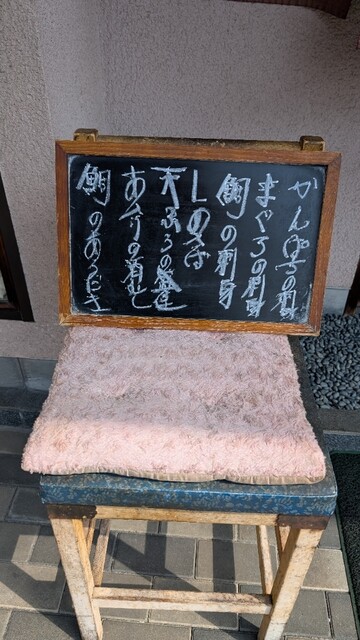 かんぱちの刺身
まぐろの刺身
鯛の刺身
しめさば
天ぷらの盛
あさりの酒むし
鯛のあらだき